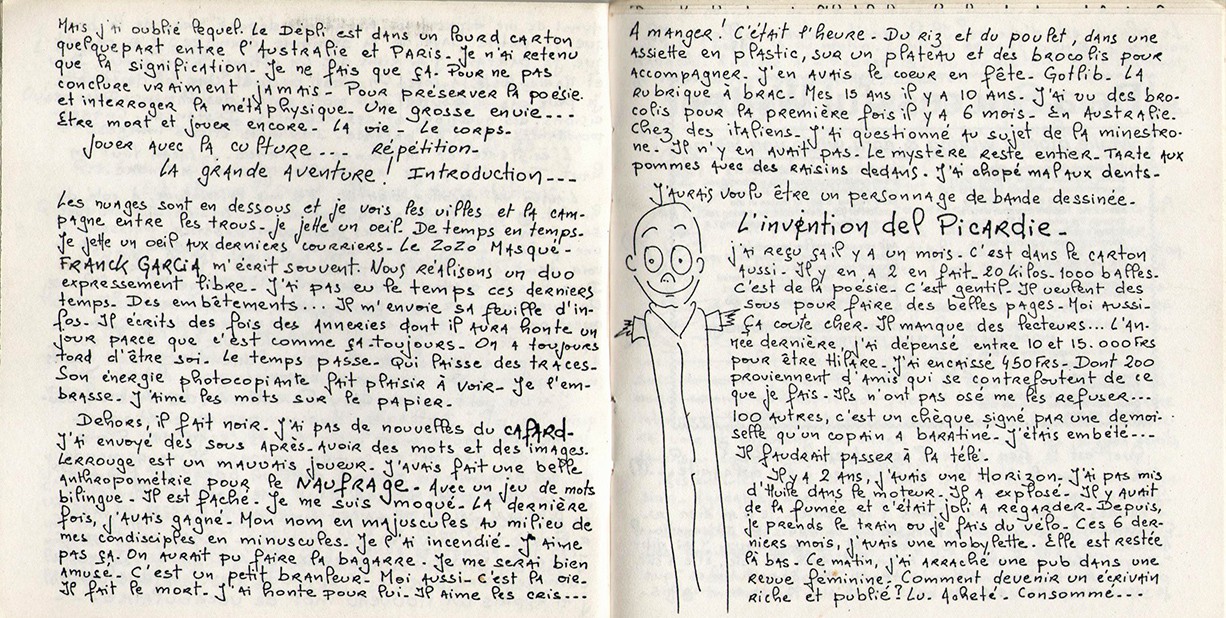 Mais j'ai oublié lequel. Le Dépli est dans un lourd carton
quelque part entre l'Australie et Paris. Je n'ai retenu
que la signification. Je ne fais que ça. Pour ne pas
conclure vraiment jamais. Pour préserver la poésie.
et interroger la métaphysique. Une grosse envie...
Etre mort et jouer encore. La vie. Le corps.
Jouer avec la culture... Répétition.
La grande aventure! Introduction...
Les nuages sont en dessous et je vois les villes et la cam-
pagne entre les trous. Je jette un oeil. De temps en temps.
Je jette un oeil aux derniers courriers. Le Zozo Masqué.
FRANCK GARCIA m'écrit souvent. Nous réalisons un duo
expressement libre. J'ai pas eu le temps ces derniers
temps. Des embêtements... Il m'envoie sa feuille d'in-
fos. Il écrits des fois des anneries dont il aura honte un
jour parce que c'est comme ça toujours. On a toujours
tord d'être soi. Le temps passe. Qui laisse des traces.
Son énergie photocopiante fait plaisir à voir. Je l'em-
brasse. J'aime les mots sur le papier.
Dehors, il fait noir. J'ai pas de nouvelles du CAFARD.
J'ai envoyé des sous après. Avoir des mots et des images.
Lerrouge est un mauvais joueur. J'avais fait une belle
anthropométrie pour le NAUFRAGE. Avec un jeu de mots
bilingue. Il est faché. Je me suis moqué. La dernière
fois, j'avais gagné. Mon nom en majuscules au milieu de
mes condisciples en minuscules. Je l'ai incendié. J'aime
pas ça. On aurait pu faire la bagarre. Je me serai bien
amusé. C'est un petit branleur. Moi aussi. c'est la vie.
Il fait le mort. J'ai honte pour lui. Il aime les cris...
A manger! C'était l'heure. Du riz et du poulet, dans une
assiette en plastic, sur un plateau et des brocolis pour
accompagner. J'en avais le coeur en fête. Gotlib. La
rubrique à brac. Mes 15 ans il y a 10 ans. J'ai vu des bro-
colis pour la première fois il y a 6 mois. En Australie.
Chez des italiens. J'ai questionné au sujet de la minestro-
ne. Il n'y en avait pas. Le mystère reste entier. Tarte aux
pommes avec des raisins dedans. J'ai chopé mal aux dents.
J'aurais voulu être un personnage de bande dessinée.
L'invention del Picardie.
j'ai reçu ça il y a un mois. C'est dans le carton
aussi. Il y en a 2 en fait. 20 kilos. 1000 balles.
C'est de la poésie. C'est gentil. Il veulent des
sous pour faire des belles pages. Moi aussi.
Ça coute cher. Il manque des lecteurs... L'an-
née dernière, j'ai dépensé entre 10 et 15.000 Frs
pour être Hilare. J'ai encaissé 450 Frs. Dont 200
proviennent d'amis qui se contrefoutent de ce
que je fais. Ils n'ont pas osé me les refuser...
100 autres, c'est un chèque signé par une demoi-
selle qu'un copain a baratiné. J'étais embêté...
Il faudrait passer à la télé.
Il y a 2 ans, j'avais une Horizon. J'ai pas mis
d'Huile dans le moteur. Il a explosé. Il y avait
de la fumée et c'était joli a regarder. Depuis,
je prends le train ou je fais du vélo. Ces 6 der-
niers mois, j'avais une mobylette. Elle est restée
là bas. Ce matin, j'ai arraché une pub dans une
revue féminine. Comment devenir un écrivain
riche et publié? Lu. Acheté. Consommé...